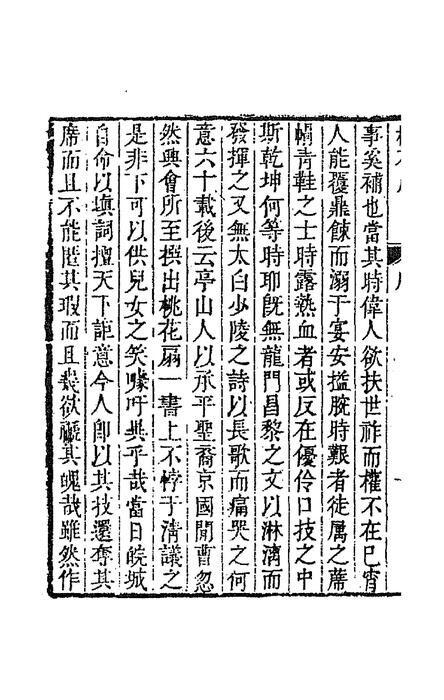 事奚補也當其時偉人欲扶世祚而權不在已宵
人能覆鼎餗而溺于宴安搤腕時艱者徒属之蓆
帽青鞋之士時露熱血者或反在優伶口技之中
斯乾坤何等時耶既無龍門昌黎之文以淋漓而
發揮之又無太白少陵之詩以長歌而痛哭之何
意六十載後云亭山人以承平聖裔京國閒曹忽
然興會所至撰出桃花扇一書上不悖于清議之
是非下可以供兒女之笑噱吁異乎哉當日皖城
自命以填詞擅天下詎意今人卽以其技還奪其
席而且不能匿其瑕而且幾欲褫其魄哉雖然作